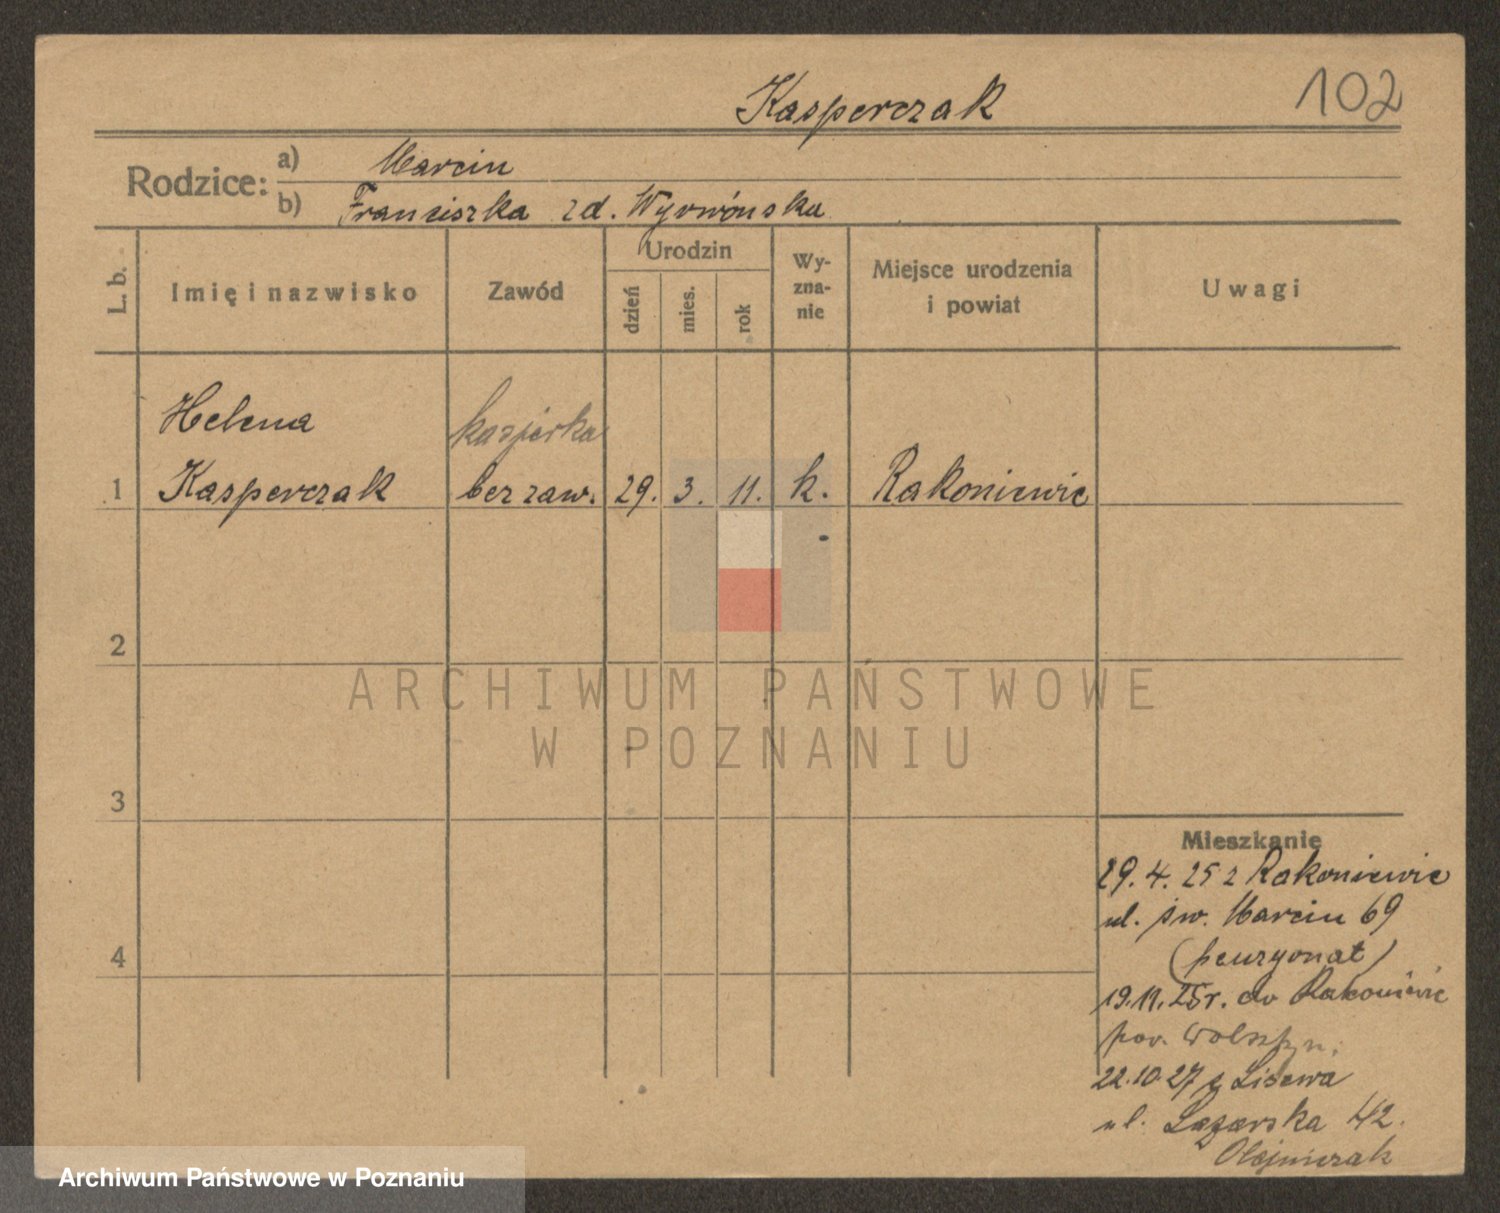 Kasperczak
102
Rodzice:
a) Marcin
b) Franciszka zd. Wyrwińska
L. b.
Imię i nazwisko
Zawód
Urodzin
dzień
mies.
rok
Wy-
zna-
nie
Miejsce urodzenia
i powiat
Uwagi
Helena
kasjerka
1 Kasperczak bez zaw. 29. 3. 11. k. Rakoniewic
2
3
4
ARCHIWUM PAŃSTWOWE
W POZNANIU
Mieszkanie
29. 4. 25 z Rakoniewic
ul. św. Marcin 69
(penzyonat)
19.11.25r. do Rakoniewic
pow. Wolsztyn.
22.10.27 z Lisewa
ul. Łazarska 42.
Olejniczak
Archiwum Państwowe w Poznaniu